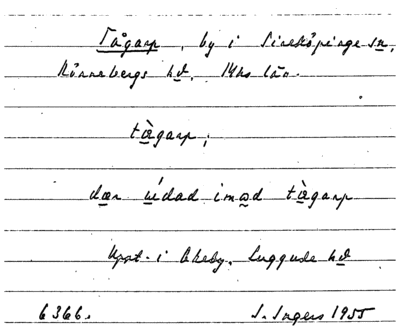 Tågarp, by i Sireköpinge sn,
Rönnebergs hd, Mhs län.
tàgarp;
dær údad imod tàgarp
Uppt. i Ekeby, Luggude hd
6366. I. Ingers 1955